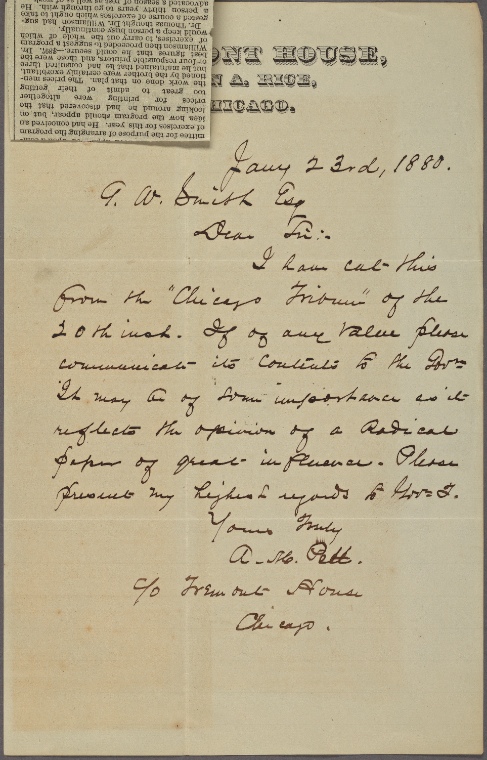 ONT HOUSE,
N A. RICE,
HICAGO.
mittee for the purpose of arranging the program
of exercises for this year. He had conceived an
idea how the program should appear, but on
looking around he had discovered that the
prices for printing were altogether
too great to admit of their getting
the work done on that plan. The prices men-
tioned by the brother were certainly exorbitant,
but he maintained that he had inquired three
or four responsible printers, and those were the
best figures that he could secure. Dr.
Williamson then proceeded to suggest a program
of exercises, to carry out the whole of which
would keep a person busy continually.
Dr. Thomas thought Dr. Williamson had sug-
gested a course of exercises which ought to take
a person thirty years to go through with. He
advocated a season of rest as well as of
Jany 23rd, 1880.
T. W. Smith Esq
Dear Sir:-
I have cut this
from the "Chicago Tribune" of the
20th inst. If of any value please
communicate its contents to the Govr
It may be of some importance as it
reflects the opinion of a Radical
paper of great influence. Please
present my highest regards to Govr T.
Yours Truly
A. M. Pett.
c/o Tremont House
Chicago.